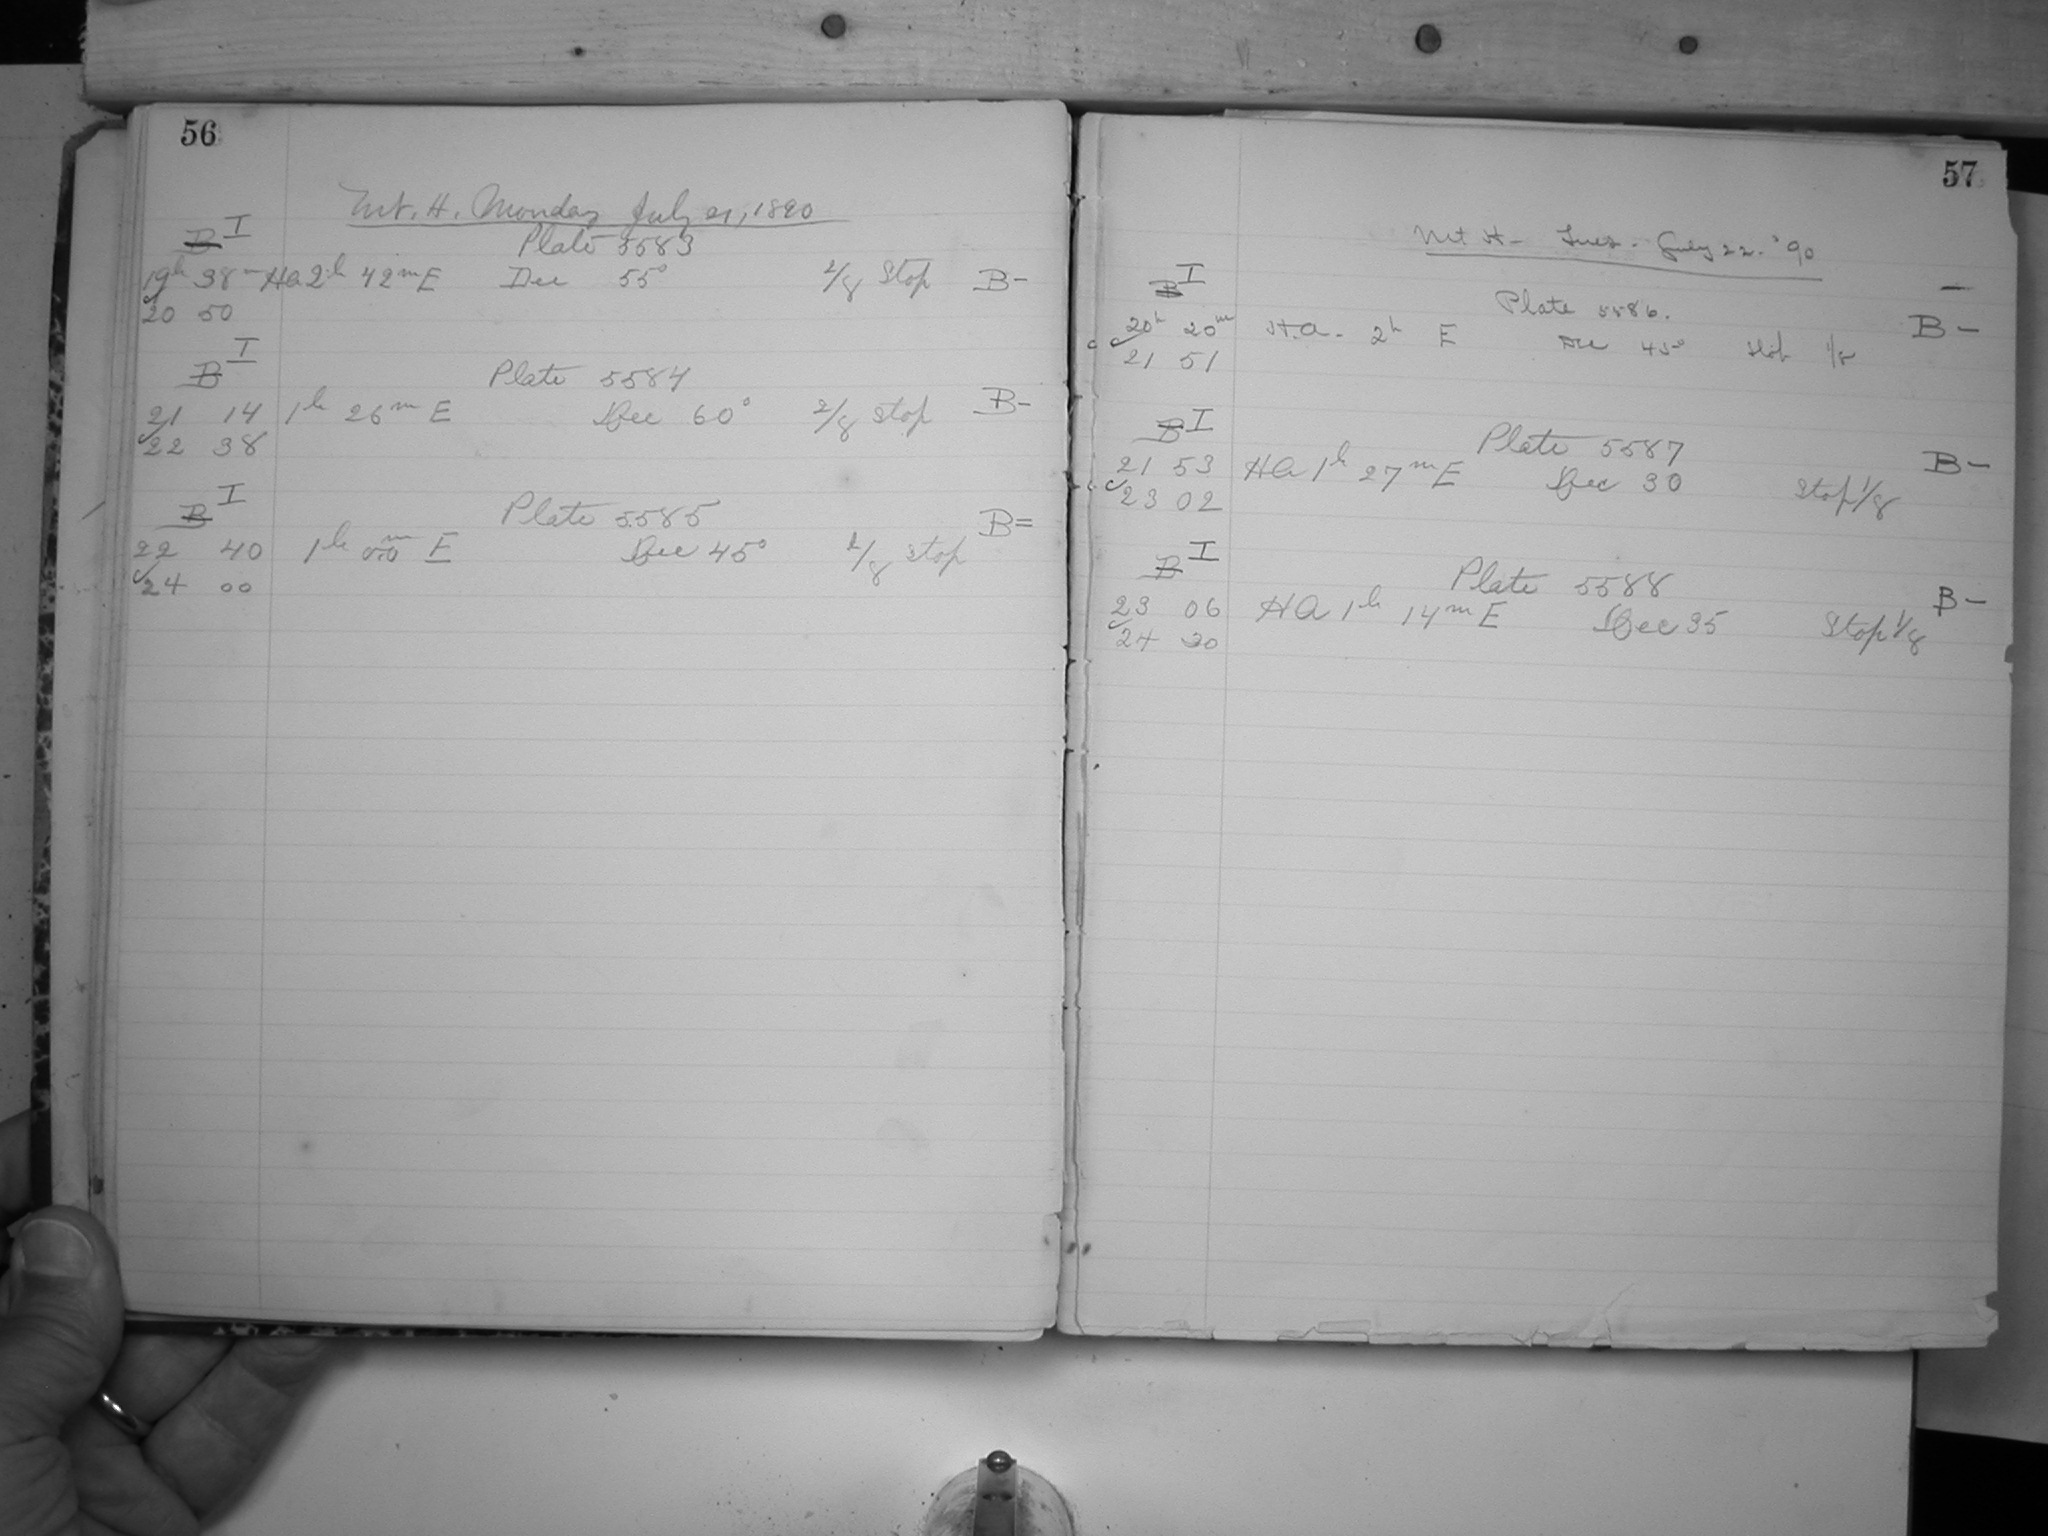 56
Mt. H. Monday July 21, 1890
B I
Plate 5583
19h 38m Ha 2h 42m E Dec 55° 2/8 Stop B-
20 50
B I
Plate 5584
21 14 1h 26m E Dec 60° 2/8 Stop B-
22 38
B I
Plate 5585
22 40 1h 00m E Dec 45° 2/8 Stop B=
24 00
57
Mt H- Tues. July 22. '90
B I
Plate 5586.
20h 20m H.a. 2h E Dec 45° Stop 1/8 B-
21 51
B I
Plate 5587
21 53 HA 1h 27m E Dec 30 Stop 1/8 B-
23 02
B I
Plate 5588
23 06 HA 1h 14m E Dec 35 Stop 1/8 B-
24 20